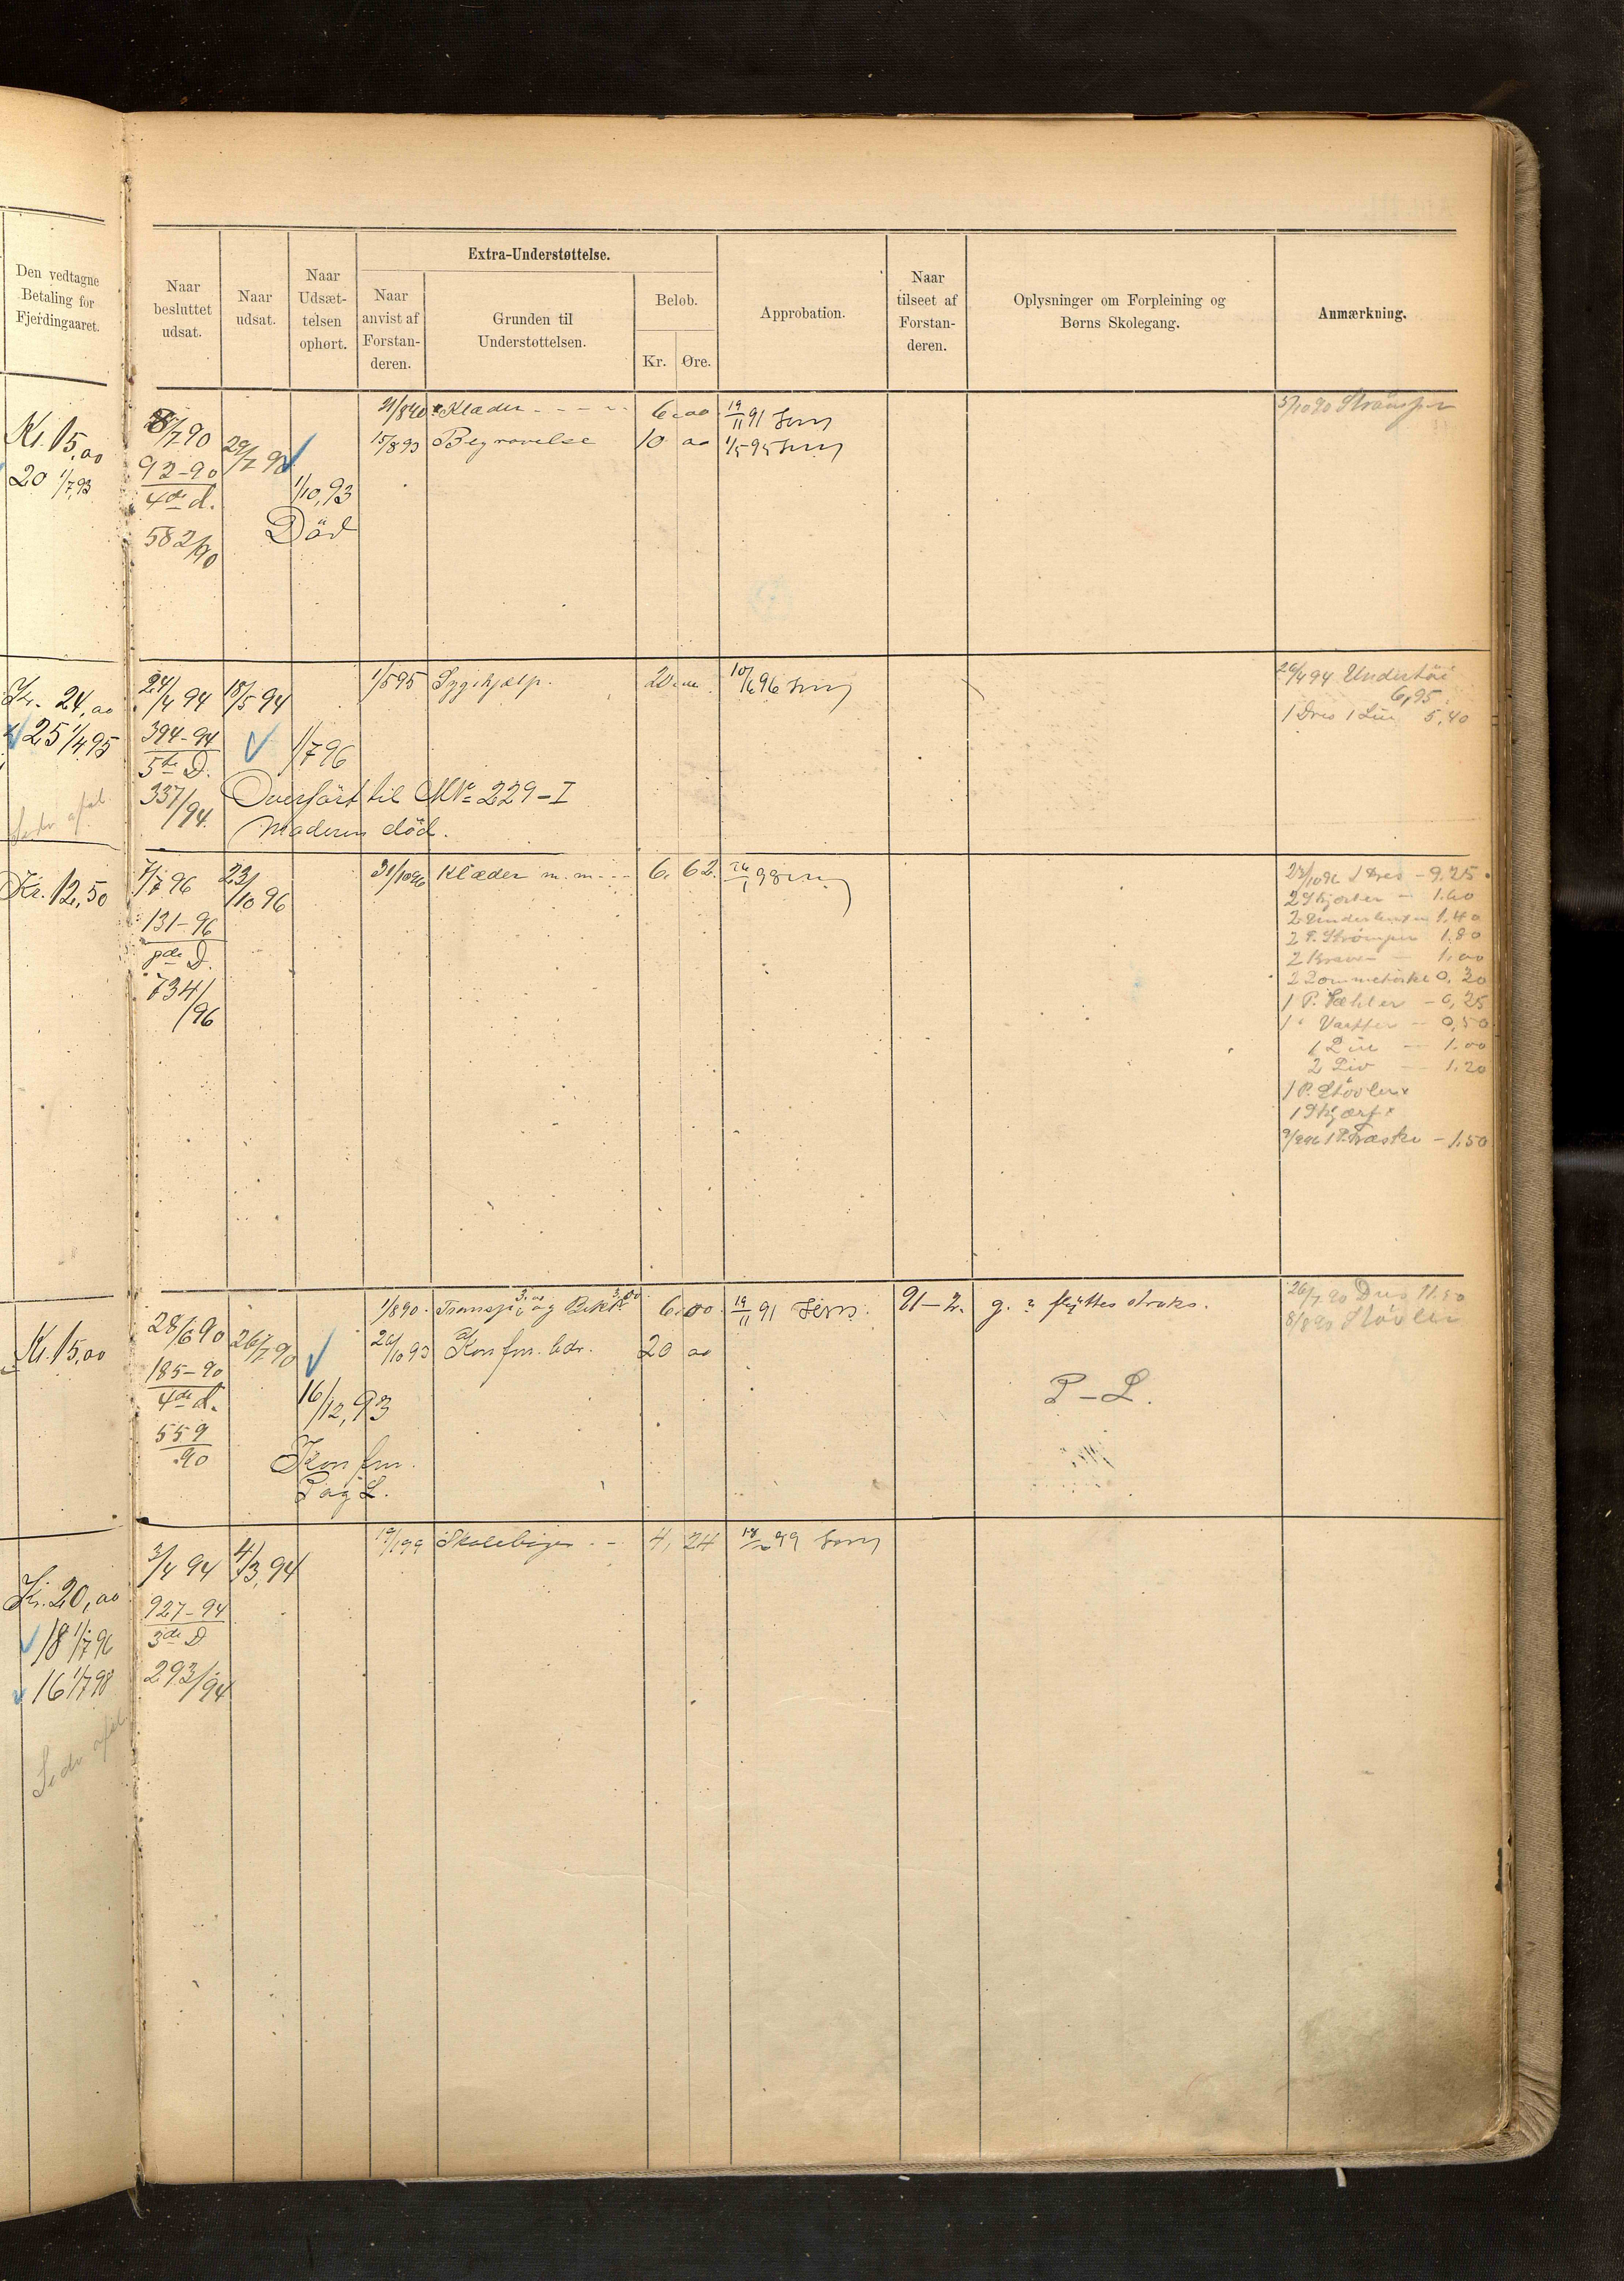 Den vedtagne
Betaling for
Fjerdingaaret.
Naar
besluttet
udsat.
Naar
udsat.
Naar
Udsæt-
telsen
ophørt.
Extra-Understøttelse.
Naar
anvist af
Forstan-
deren.
Grunden til
Understøttelsen.
Beløb.
Kr. Øre.
Approbation.
Naar
tilseet af
Forstan-
deren.
Oplysninger om Forpleining og
Børns Skolegang.
Anmærkning.
Kr. 15,00
20 1/7,93
8/7 90
92-90
4de d.
582/90
29/7 90
1/10,93
Död
Klæder
6,00
19/11 91
15/8 93 Begravelse
10 00
5/10 90 Strömper
Kr. 24,00
25 1/4 95
24/4 94
394-94
5te D.
337/94.
18/5 94
1/7 96
Overfört til MNo 229-I
Moderen död.
1/5 95 Sygehjælp.
20
10/6 96
29/4 94 Undertöi
6,95
1 Dres 1 Lüe 5,40
Kr. 12,50
7/7 96
131-96
D.
734/96
23/10 96
31/10 96 Klæder m.m.
6, 62
23/10 96 1 Dres - 9,25
2 Skjorter - 1.60
2 Underbuxer 1.40
2 P. Strömper 1.80
2 Kraver - 1.00
2 Lommetörkl 0,30
1 P. Sæhler - 0,25
1 " Vatter - 0,50
1 Lüe - 1.00
2 Liv - 1.20
1 P. Stövler x
1 Skjærf x
1 P. Træsko - 1.50
Kr. 15,00
28/6 90
185-90
4de d.
559
90
26/7 90
16/12,93
Konfm.
P og L.
1/8 90 Transp. 3,00 og Bekk 3,00
6,00
19/11 91
91-2.
g. ? flyttes straks.
26/10 93 Konfm. bdr.
20 00
P-L.
26/7 90 Dres 11.50
8/8 90 Stövler
Kr. 20,00
18 1/7 96
16 1/7 98
3/4 94
927-94
3de D
293/94
4/3,94
Skolebøger
4, 24